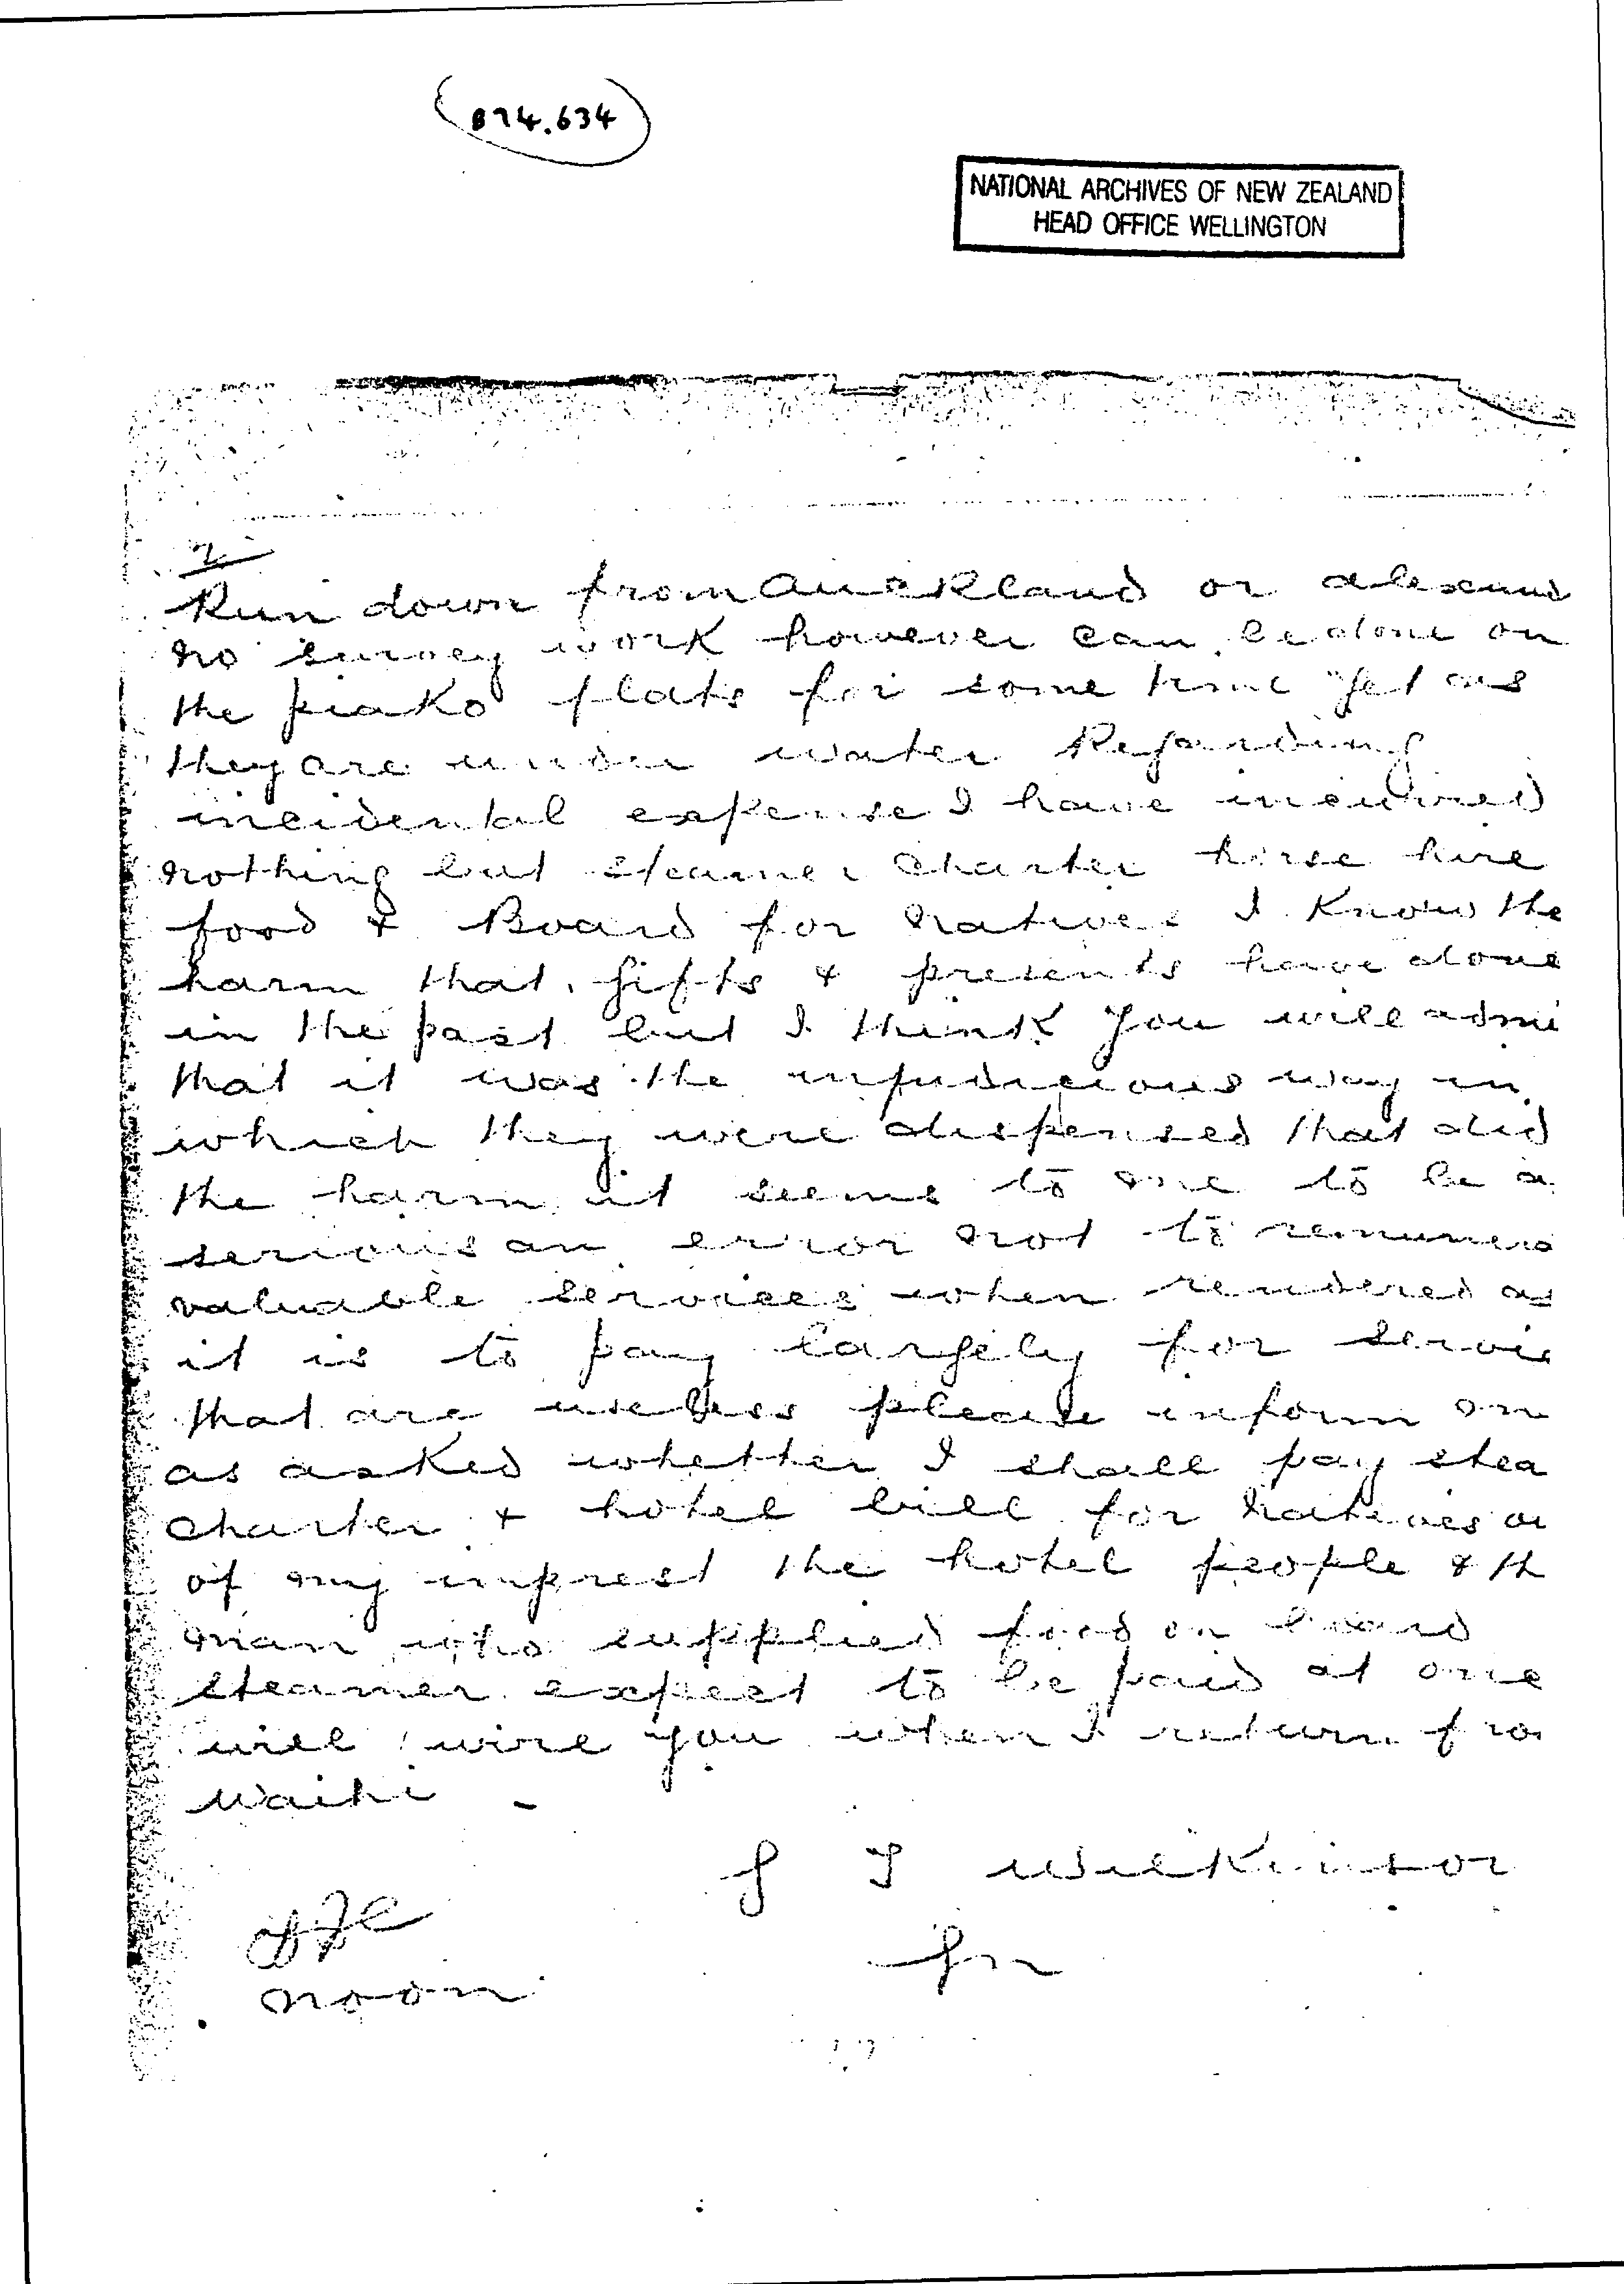 874.634
NATIONAL ARCHIVES OF NEW ZEALAND
HEAD OFFICE WELLINGTON
2
Run down from Auckland or alexand
no survey work however can be done on
the piako flats for some time yet as
they are under water Regarding
incidental expense I have incurred
nothing but steamer charter horse hire
food & Board for natives I know the
harm that gifts & presents have done
in the past but I think you will admi
that it was the injudicious way in
which they were dispensed that did
the harm it seems to me to be a
serious an error not to remunera
valuable services when rendered as
it is to pay largely for servic
that are useless please inform m
as asked whether I shall pay stea
charter & hotel bill for natives ou
of my imprest the hotel people & th
man who supplied food on board
steamer expect to be paid at once
will wire you when I return fro
Waihi -
G T Wilkinson
noon